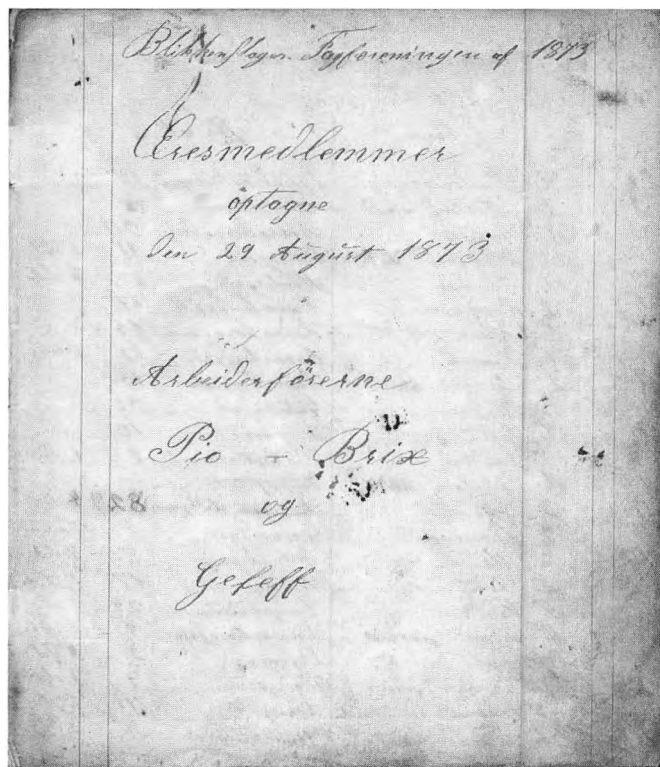 Blikkenslager. Fagforeningen af 1873
Æresmedlemmer
optagne
den 29 August 1873
Arbeiderförerne
Pio – Brix
og
Geleff